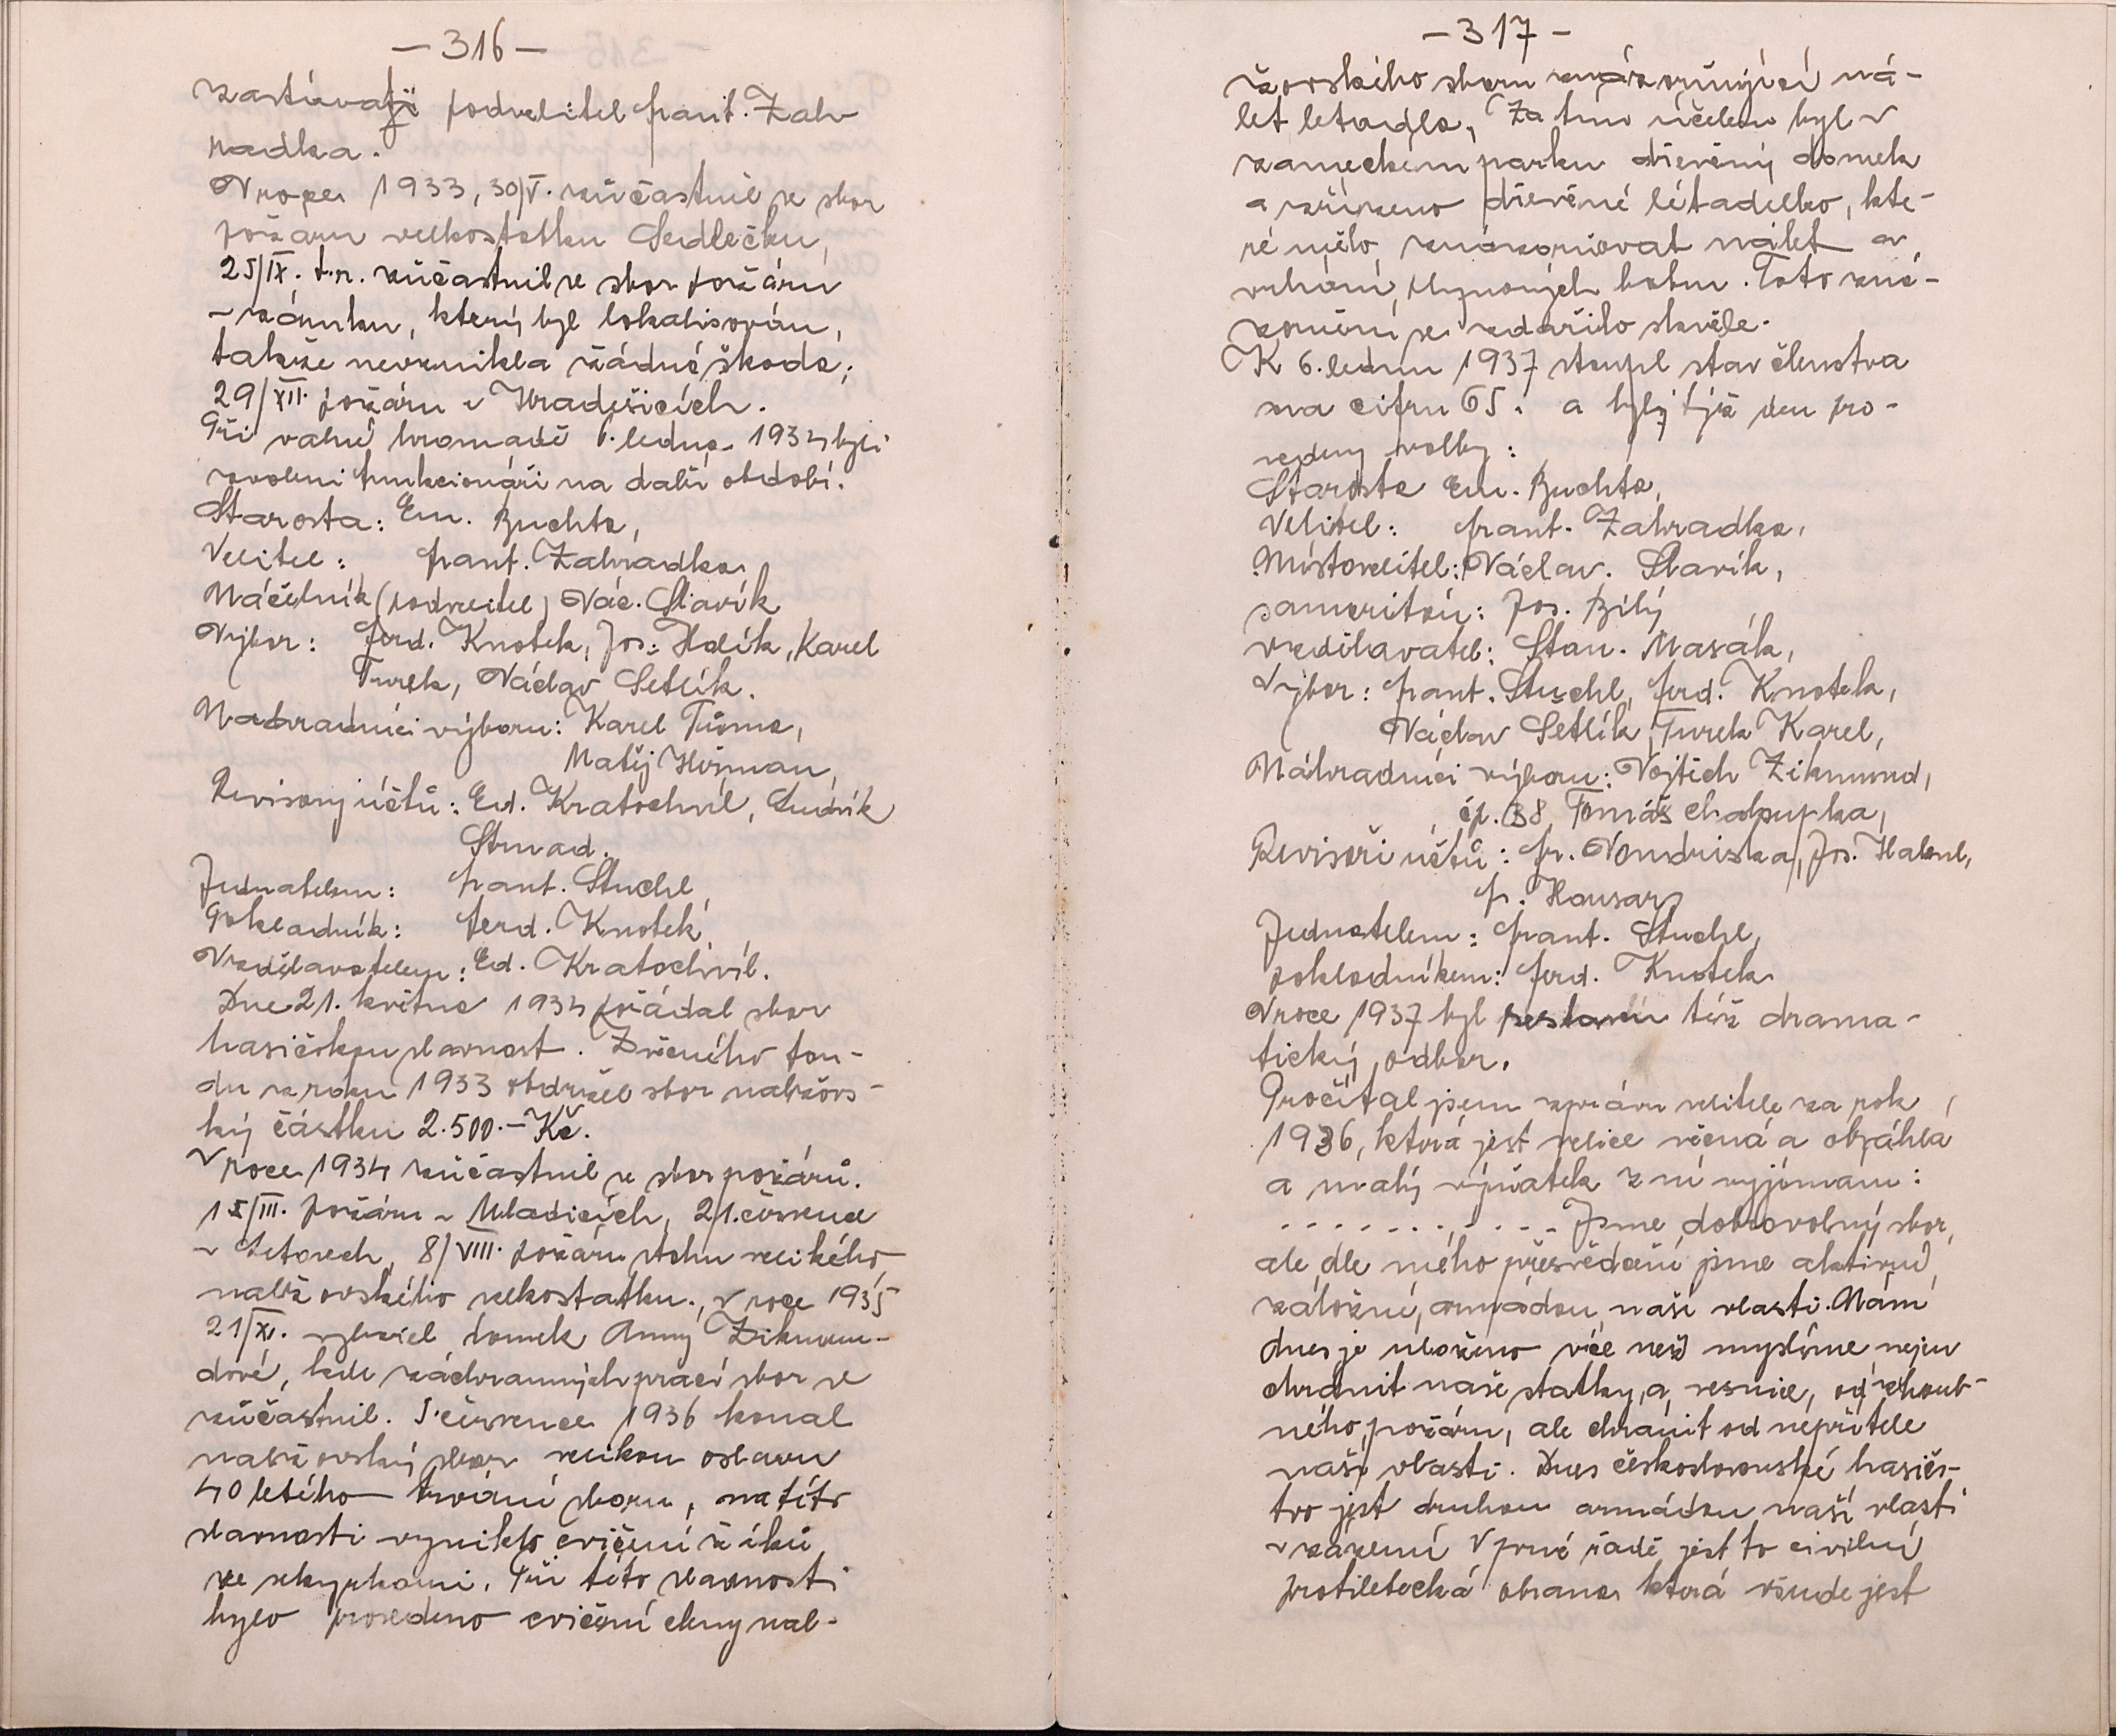 — 316 —
zastávají podvelitel frant. Zah
radka.
V roce 1933, 30/V. zůčastnil se sbor
požáru velkostatku Sedlečku,
25/IX. t.r. zůčastnil se sbor požáru
v zámku, který byl lokalisován,
takže nevznikla žádná škoda,
29/XII. požáru v Hradešicích.
Při valné hromadě 6. ledna 1934 byli
zvoleni funkcionáři na další období.
Starosta: Em. Buchta,
Velitel: frant. Zahradka
Náčelník (podvelitel) Vác. Slavík
Výbor: ferd. Knotek, Jos. Holík, Karel
Turek, Václav Setlík.
Nahradníci výboru: Karel Tůma,
Matěj
Revisory účtů: Ed. Kratochvíl, Ludvík
Strnad.
Jednatelem: frant. Stuchl,
Pokladník: ferd. Knotek,
Vzdělavatelem: Ed. Kratochvíl.
Dne 21. května 1934 pořádal sbor
hasičskou slavnost. Z fon-
du z roku 1933 obdržel sbor nalžovs-
ký částku 2.500.– Kč.
V roce 1934 zůčastnil se sbor požárů.
15/III. požáru v Mladicích, 21. července
v Letovech, 8/VIII. požáru stohu velikého
nalžovského velkostatku., v roce 1935
21/XI. vyhořel domek Anny Zikmun-
dové, kde záchranných prací sbor se
zůčastnil. 5. července 1936 konal
nalžovský sbor velikou oslavu
40 letého trvání sboru, na této
slavnosti vyniklo cvičení žáků
se Při této slavnosti
bylo provedeno cvičení členy nal-
– 317 –
žovského sboru znázorňující ná-
let letadla, Za tím účelem byl v
zameckém parku dřevěný domek
a zřízeno dřevěné létadélko, kte-
ré mělo znázorňovat nálet a
vrhání plynových bomb. Toto zná-
zornění se zdařilo skvěle.
K 6. lednu 1937 stoupl stav členstva
na cifru 65. a byly týž den pro-
vedeny volby:
Starosta Em. Buchta,
Velitel: frant. Zahradka,
Místovelitel: Václav. Slavík,
samaritán: Jos. Bílý
vzdělavatel: Stan. Masák,
Výbor: frant. Stuchl, ferd. Knotek,
Václav Setlík, Turek Karel,
Náhradníci výboru: Vojtěch Zikmund,
čp. 38, Tomáš Chalupka,
Revisoři účtů: fr. Vondruska, Jos.
fr. Housar,
Jednatelem: frant. Stuchl,
pokladníkem: ferd. Knotek.
V roce 1937 byl sestaven též drama-
tický odbor.
Pročítal jsem zprávu velitele za rok
1936, která jest velice věcná a obsáhlá
a malý výňatek z ní vyjímám:
. . . . . . . . . . . Jsme dobrovolný sbor,
ale dle mého přesvědčení jsme aktivní
záložní, armádou naší vlasti. Nám
dnes je uloženo více než myslíme nejen
chránit naše statky a vesnice, od zhoub-
ného, požáru, ale chránit od nepřítele
naší vlasti. Dnes československé hasičs-
tvo jest druhou armádou naší vlasti
v zázemí V prvé řadě jest to civilní
protiletecká obrana která všude jest